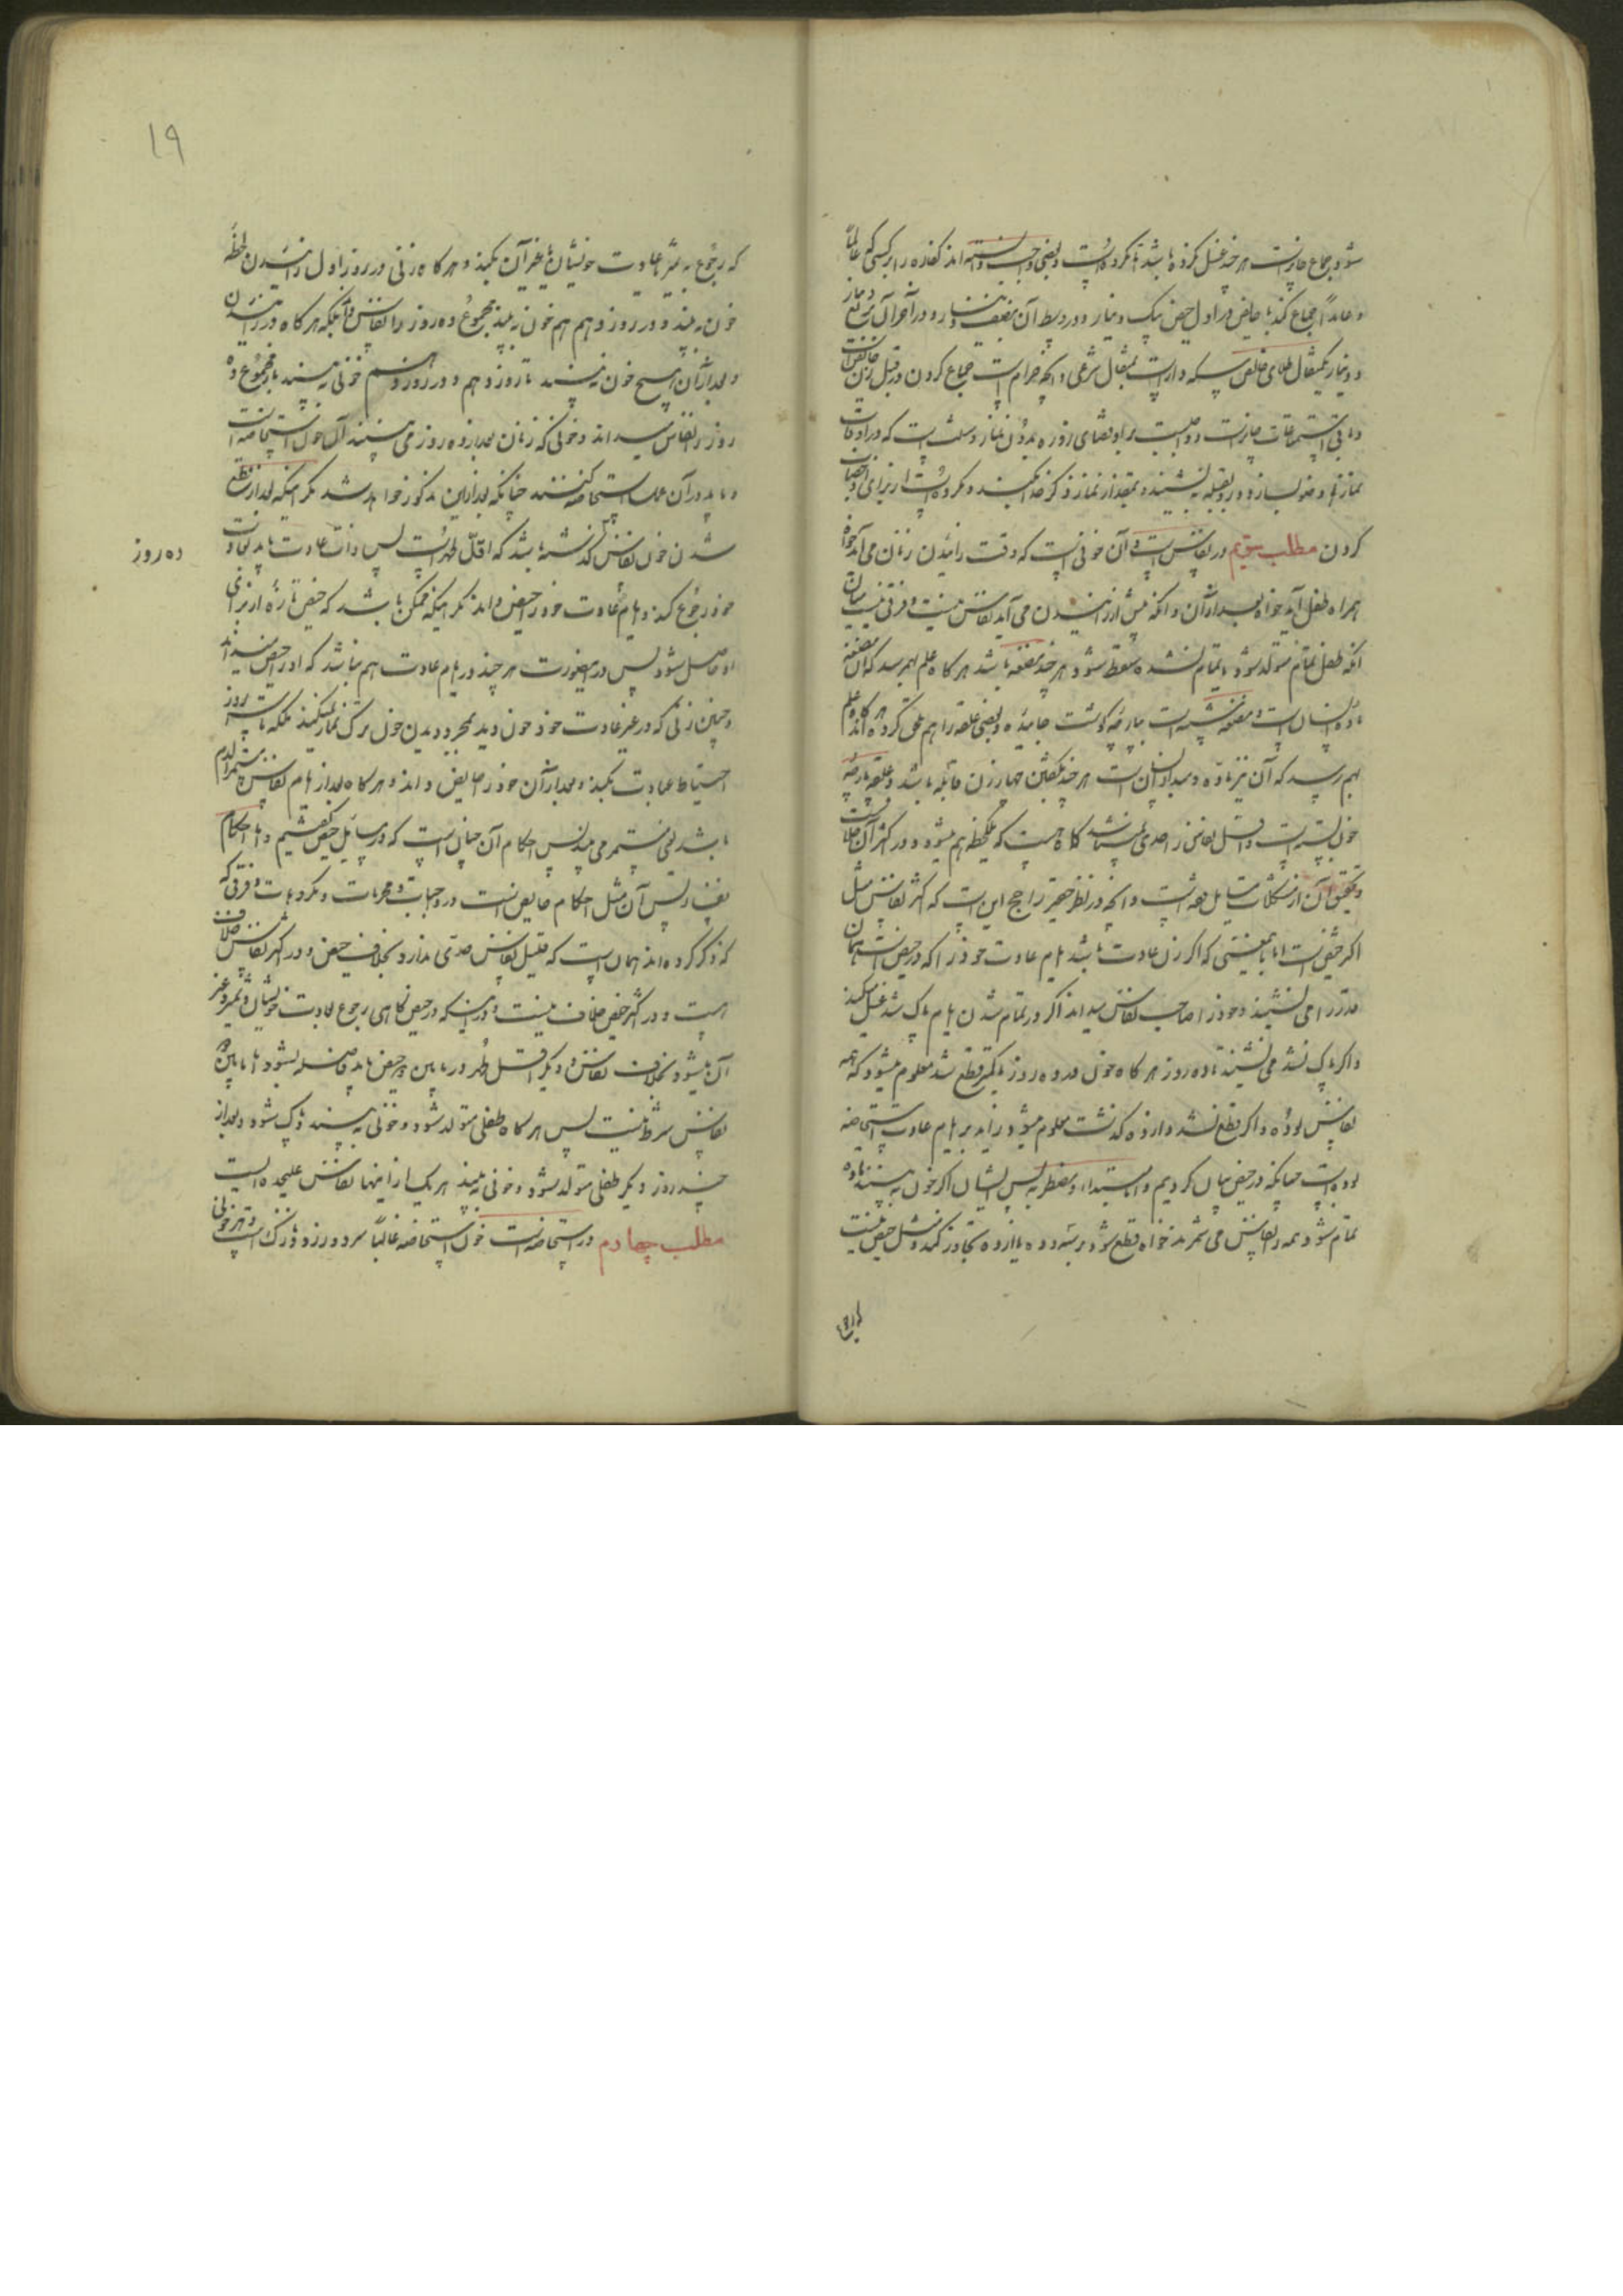 شود جماع جایز است هر چند غسل نکرده باشد اما مکروه است و بعضی واجب دانسته‌اند کفاره را بر کسی که عالماً
و عامداً جماع کند با حایض در اول حیض بیک دینار و در وسط آن بنصف دینار و در آخر آن بربع دینار
و دینار یکمثقال طلای خالص سکه دار است بمثقال شرعی و آنچه حرام است جماع کردن در قبل زن حایض است
و باقی استمتاعات جایز است و واجبست بر او قضای روزه بدون نماز و سنت است که در اوقات
نماز وضو بسازد و رو بقبله بنشیند و بمقدار نماز ذکر خدا بکند و مکروه است از برای او خضاب
کردن مطلب سیم در نفاس است و آن خونی است که وقت زائیدن زنان می‌آید خواه
همراه طفل آید خواه بعد از آن و آنکه پیش از زائیدن می‌آید نفاس نیست و فرقی نیست میان
آنکه طفل تمام متولد شود یا تمام نشده سقط شود هر چند مضغه باشد هر گاه علم بهم رسد که آن مضغه
ماده انسان است و مضغه پارچه گوشت جائیده و بعضی علقه را هم ملحق کرده‌اند هر گاه علم
بهم رسد که آن نیز ماده و مبدأ انسان است هر چند بگفتن چهار زن قابله باشد و علقه پارچه
خون بسته است و اقل نفاس را حدی نمیباشد گاه هست که یکلحظه هم میشود و در اکثر آن خلافست
و تحقیق آن از مشکلات مسایل فقه است و آنچه در نظر حقیر راجح این است که اکثر نفاس مثل
اکثر حیض است اما باین معنی که اگر زن عادت باشد ایام عادت خود را که در حیض داشت همان
قدر را می‌نشیند و خود را صاحب نفاس میداند اگر در تمام شدن ایام پاک شد غسل میکند
و اگر پاک نشد می‌نشیند تا ده روز هر گاه خون در ده روز یا کمتر قطع شد معلوم میشود که همه
نفاس بوده و اگر قطع نشد و از ده گذشت معلوم میشود زاید بر ایام عادت استحاضه
بوده است چنانکه در حیض بیان کردیم و اما مبتدأه و مضطربه پس ایشان اگر خون به بینند تا ده
تمام شود همه را نفاس می‌شمرند خواه قطع شود بر سر ده یا از ده تجاوز کند و مثل حیض نیست
که رجوع به تمیز یا عادت خویشان یا غیر آن بکنند و هر گاه زنی در روز اول زائیدن لحظه
خون به بیند و در روز دهم هم خون به بیند مجموع ده روز را نفاس داند بلکه هر گاه در زائیدن
و بعد از آن هیچ خون نه بیند تا روز دهم و در روز دهم خونی به بیند مجموع ده
روز را نفاس میداند و خونی که زنان بعد از ده روز می بینند آن خون استحاضه است
و باید در آن عمل استحاضه کنند چنانکه بعد از این مذکور خواهد شد مگر اینکه بعد از منقطع
شدن خون نفاس گذشته باشد که اقل طهر است پس ذات عادت باید بعادت
ده روز
خود رجوع کند و ایام عادت خود را حیض داند مگر اینکه ممکن باشد که حیض تازه از برای
او حاصل شود پس در اینصورت هر چند در ایام عادت هم نباشد که او را حیض میداند
و چنین زنی که در غیر عادت خود خون دید بمجرد دیدن خون ترک نماز نمیکند بلکه تا سه روز
احتیاط عبادت بکند و بعد از آن خود را حایض داند و هر گاه بعد از ایام نفاس مستمر الدم
باشد یعنی مستمر می بیند پس احکام آن چنان است که در مسایل حیض گفتیم و اما احکام
نفاس پس آن مثل احکام حایض است در واجبات و محرمات و مکروهات و فرقی که
که ذکر کرده‌اند همان است که قلیل نفاس حدی ندارد بخلاف حیض و در اکثر نفاس خلاف
است و در اکثر حیض خلاف نیست و در اینکه در حیض گاهی رجوع بعادت خویشان و تمیز و غیر
آن میشود بخلاف نفاس و دیگر اقل طهر در ما بین دو حیض باید فاصله بشود اما ما بین دو
نفاس شرط نیست پس هر گاه طفلی متولد شود و خونی به بیند و پاک شود و بعد از
چند روز دیگر طفلی متولد شود و خونی به بیند هر یک از اینها نفاس علیحده ایست
مطلب چهارم در استحاضه است خون استحاضه غالباً سرد و زرد و نازک است و هر خونی
۱۹